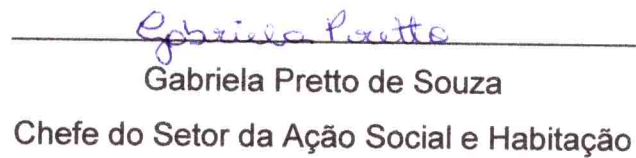 Gabriela Pretto
Gabriela Pretto de Souza
Chefe do Setor da Ação Social e Habitação